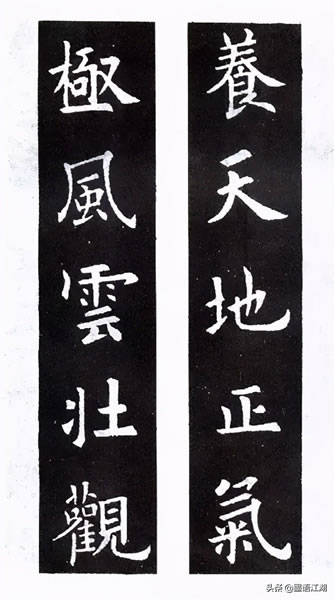 養天地正氣
極風雲壯觀
头条 @國语江湖